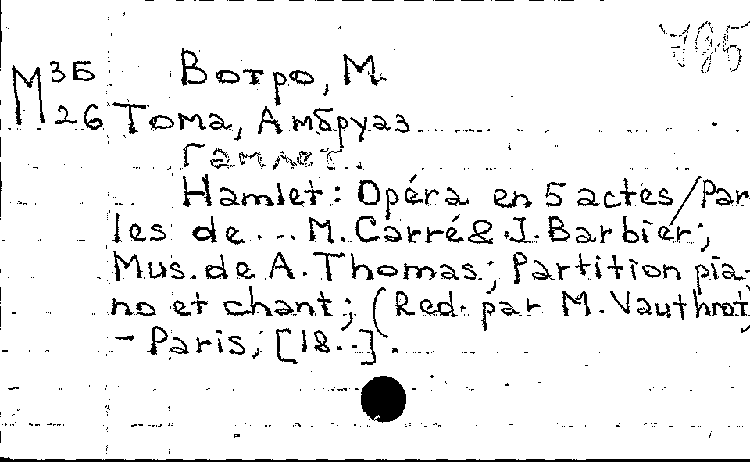 795
М 3Б Вотро, М.
26 Тома, Амбруаз
Гамлет.
Hamlet: Opéra en 5 actes/Par
les de... M. Carré & J. Barbier;
Mus. de A. Thomas; Partition pia-
no et chant; (Red. par M. Vauthrot)
- Paris, [18..].